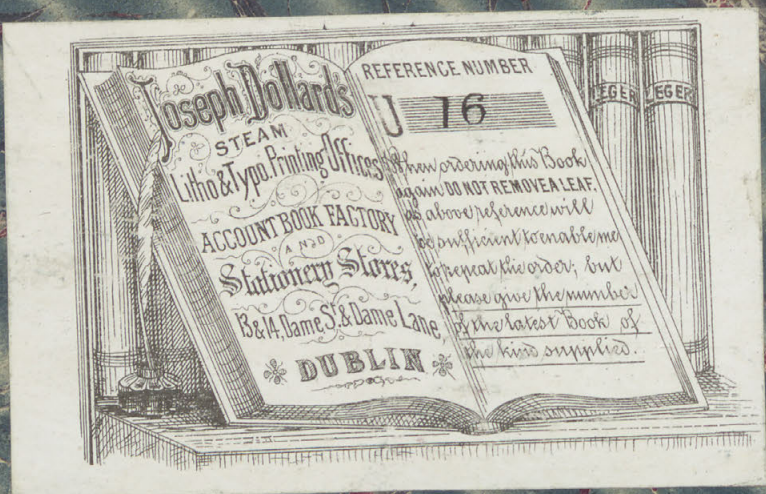 Joseph Dollard's
STEAM
Litho & Typo. Printing Offices
ACCOUNT BOOK FACTORY
AND
Stationery Stores,
13 & 14, Dame St. & Dame Lane,
DUBLIN
REFERENCE NUMBER
U 16
When ordering this Book
again DO NOT REMOVE A LEAF,
as above reference will
be sufficient to enable me
to repeat the order; but
please give the number
of the latest Book of
the kind supplied.
LEGER LEGER